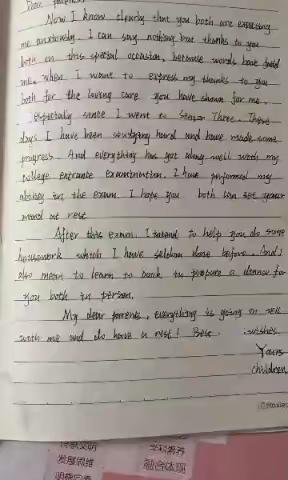 Dear parents
Now I know clearly that you both are expecting
me anxiously. I can say nothing but thanks to you
both on this special occasion, because words have faild
me, when I want to express my thanks to you
both for the loving care you have shown for me.
Especially since I went to Senior Three. These
days I have been studying hard and have made some
progress. And everything has got along well with my
college entrance examination. I have performed my
ability in the exam. I hope you both can set your
mind at rest
After this exam. I intend to help you do some
housework which I have seldom done before. And I
also mean to learn to cook to prepare a dinner for
you both in person.
My dear parents, everything is going on well
with me and do have a rest! Best wishes.
Yours
children
发展思维
融合体现